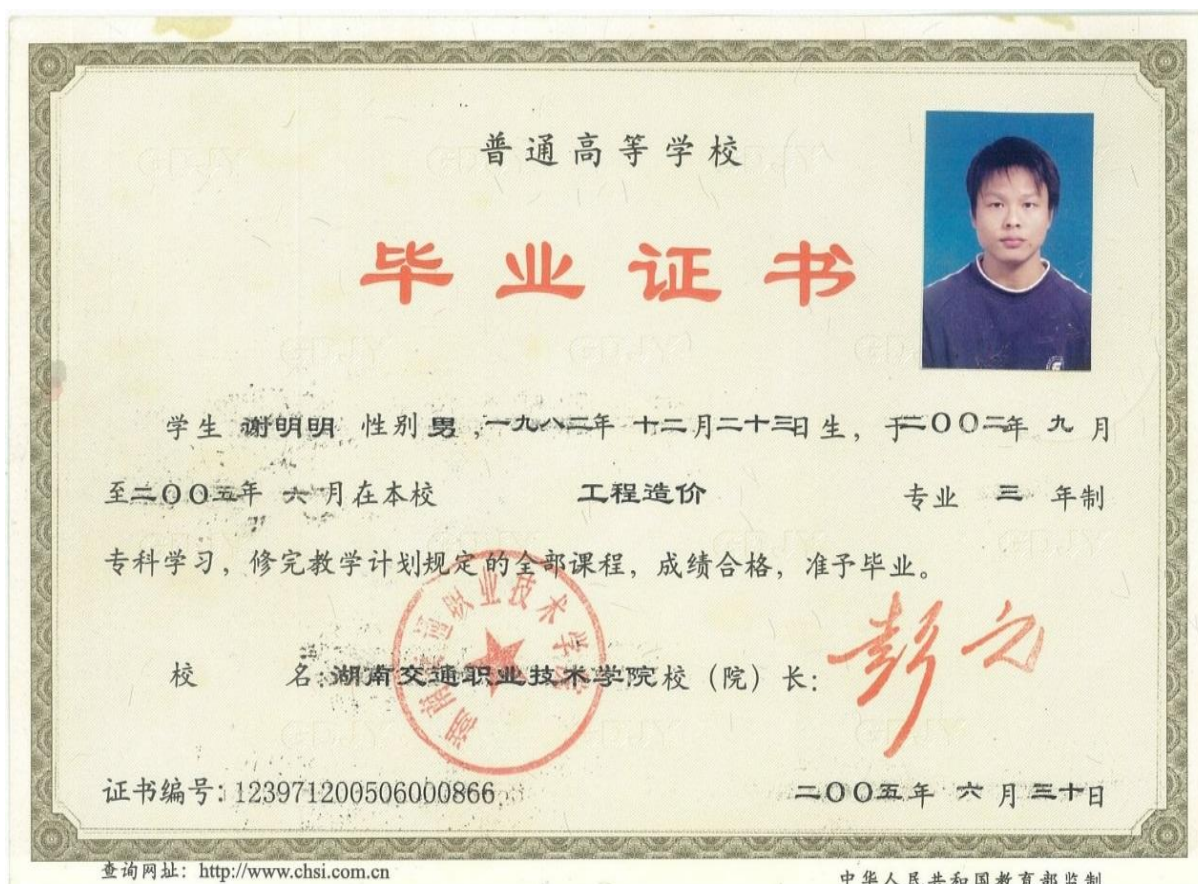 普通高等学校
毕业证书
学生 谢明明 性别 男，一九八二年 十二月二十三日生，于二〇〇二年 九 月
至二〇〇五年 六 月在本校 工程造价 专业 三 年制
专科学习，修完教学计划规定的全部课程，成绩合格，准予毕业。
湖南交通职业技术学院
校 名:湖南交通职业技术学院校（院）长:
证书编号: 123971200506000866
二〇〇五年 六 月三十日
查询网址: http://www.chsi.com.cn
中华人民共和国教育部监制